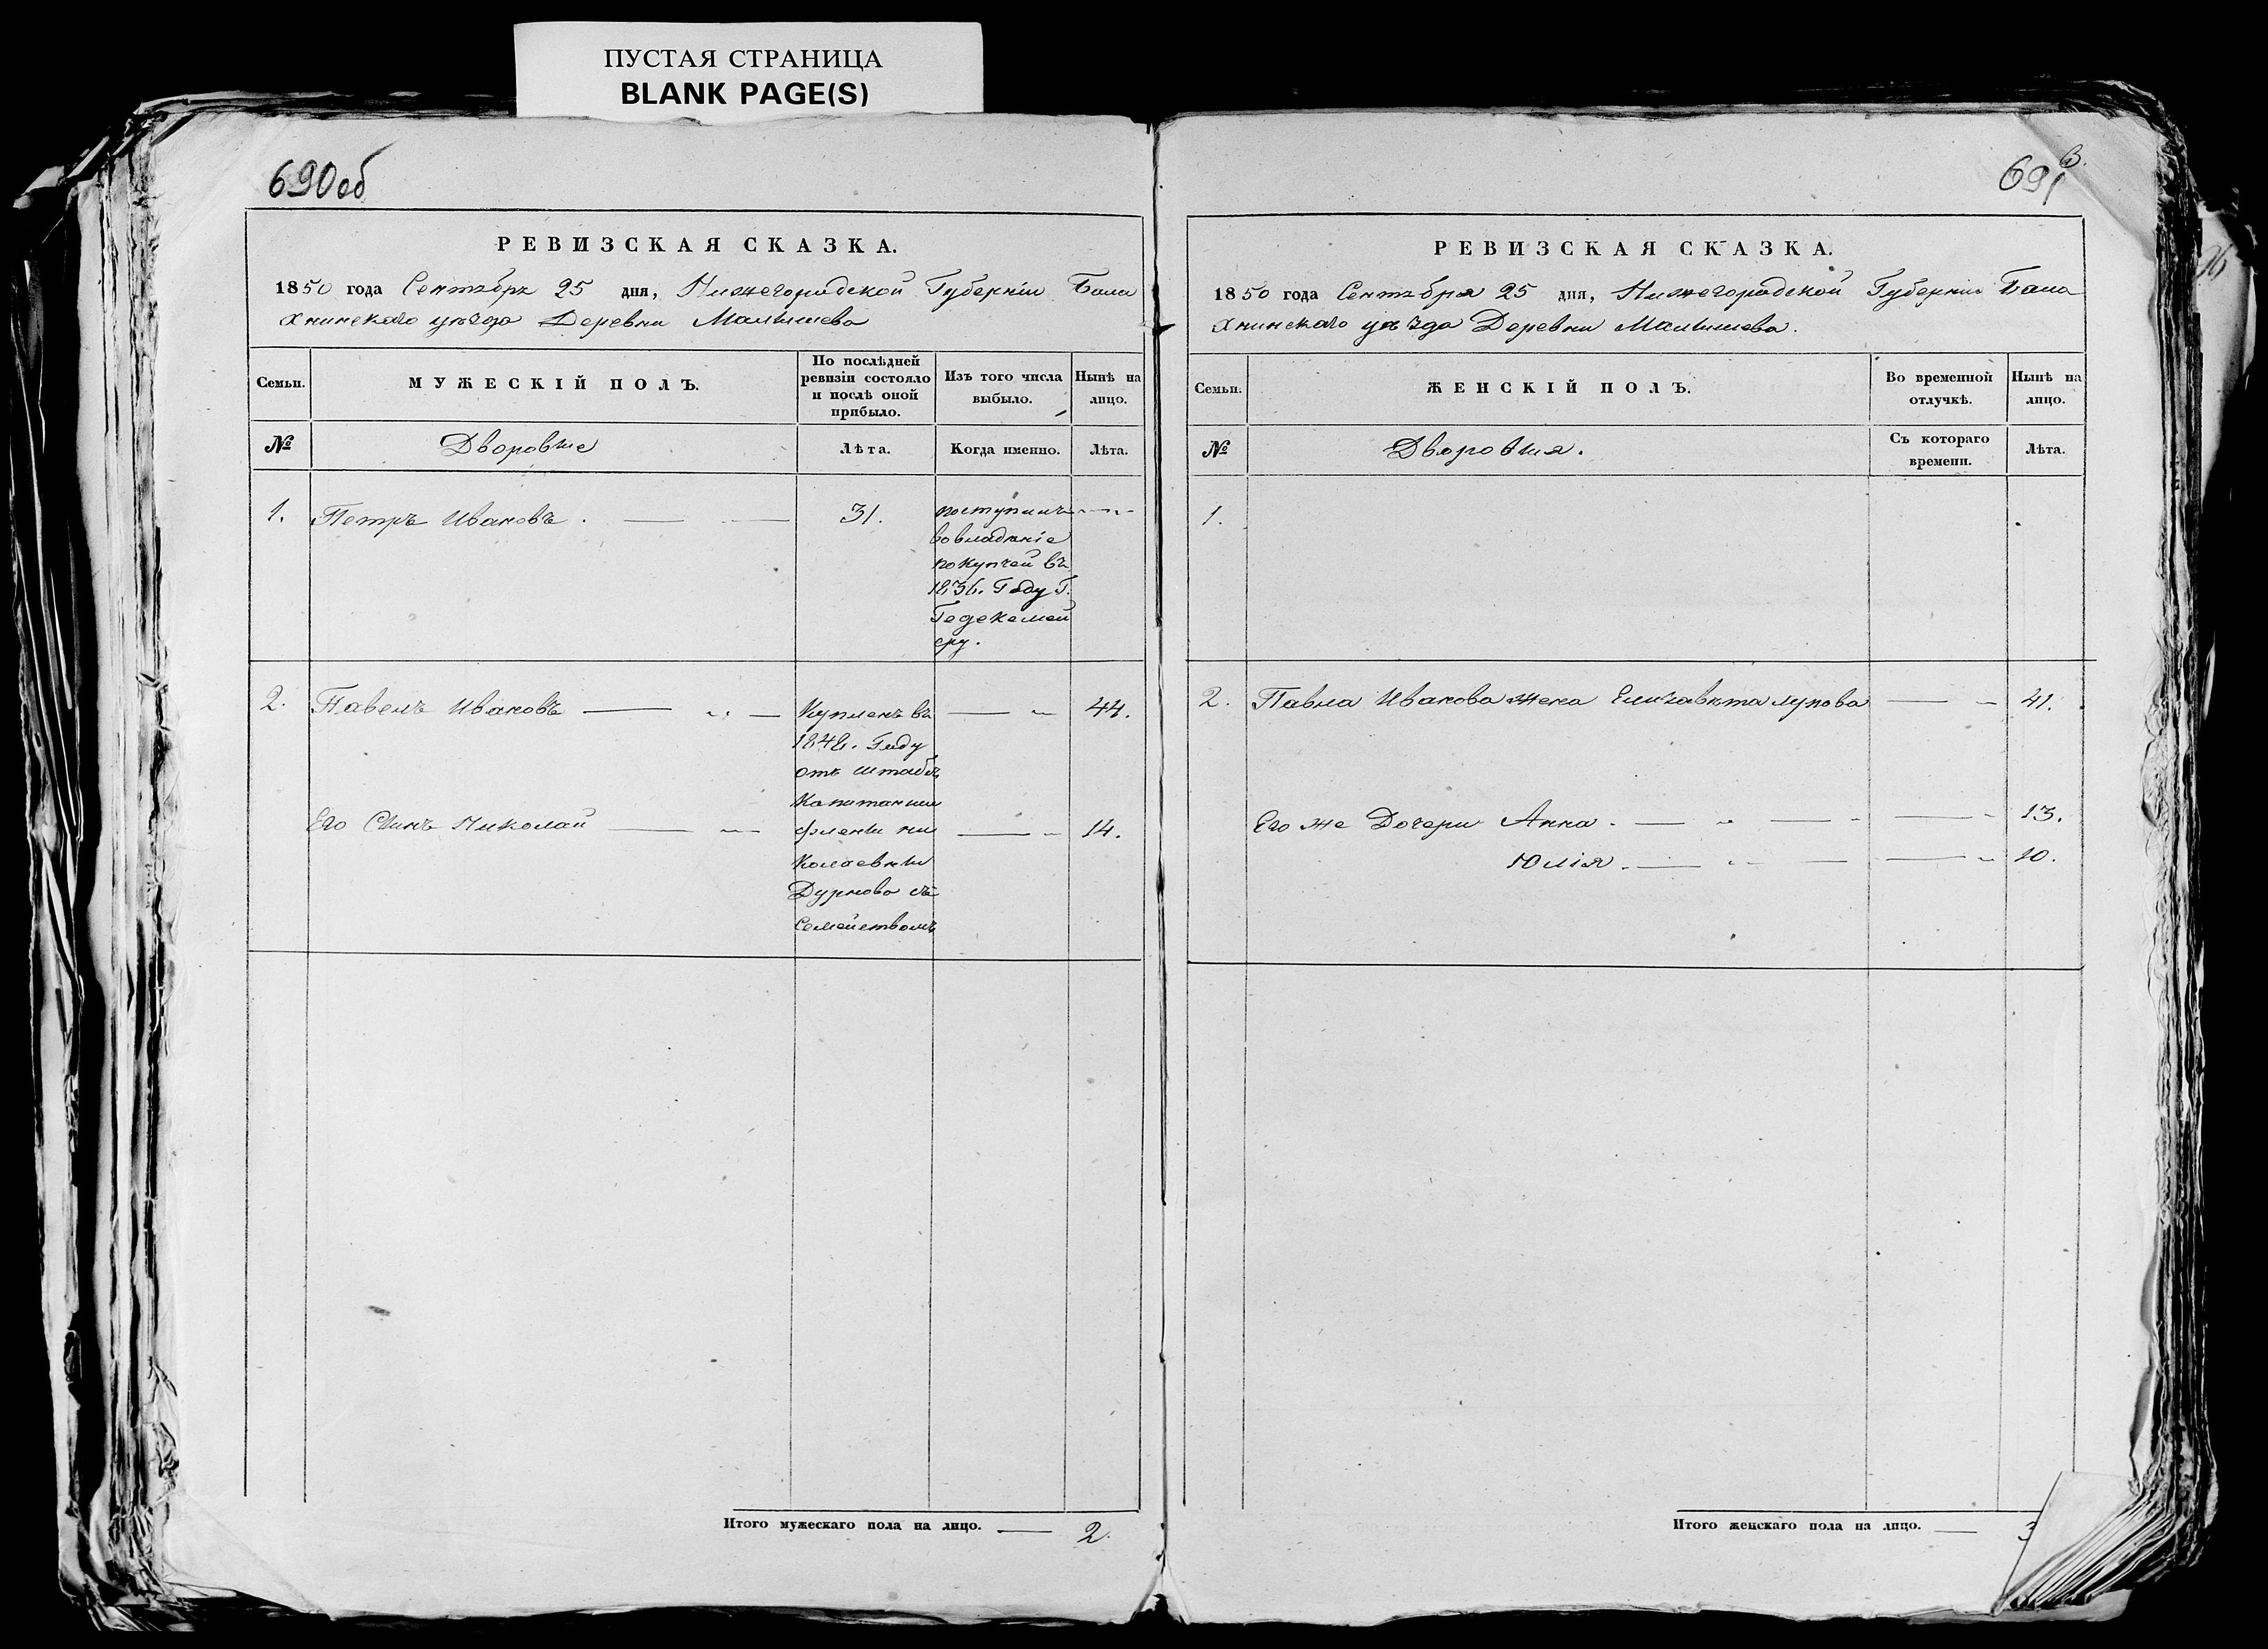 ПУСТАЯ СТРАНИЦА
BLANK PAGE(S)
690об
РЕВИЗСКАЯ СКАЗКА.
1850 года Сентября 25 дня, Нижегородской Губерніи Бала
хнинскаго уѣзда Деревни Малышева
Семьи.
МУЖЕСКІЙ ПОЛЪ.
По послѣдней
ревизіи состояло
и послѣ оной
прибыло.
Изъ того числа
выбыло.
Нынѣ на
лицо.
№
Дворовые
Лѣта.
Когда именно.
Лѣта.
1. Петръ Ивановъ. 31.
поступилъ
во владѣніе
по купчей въ
1836. Году Г.
еру.
2. Павелъ Ивановъ 44.
Купленъ въ
Году
отъ штабсъ
Капитанши
Колаевны
Дурново съ
Семействомъ
Его Сынъ Николай 14.
Итого мужескаго пола на лицо. 2.
691
РЕВИЗСКАЯ СКАЗКА.
1850 года Сентября 25 дня, Нижегородской Губерніи Бала
хнинскаго уѣзда Деревни Малышева.
Семьи.
ЖЕНСКІЙ ПОЛЪ.
Во временной
отлучкѣ.
Нынѣ на
лицо.
№
Дворовыя.
Съ котораго
времени.
Лѣта.
1.
2. Павла Иванова жена Елизавѣта Лупова 41.
Его же Дочери Анна 13.
Юлія 10.
Итого женскаго пола на лицо. 3